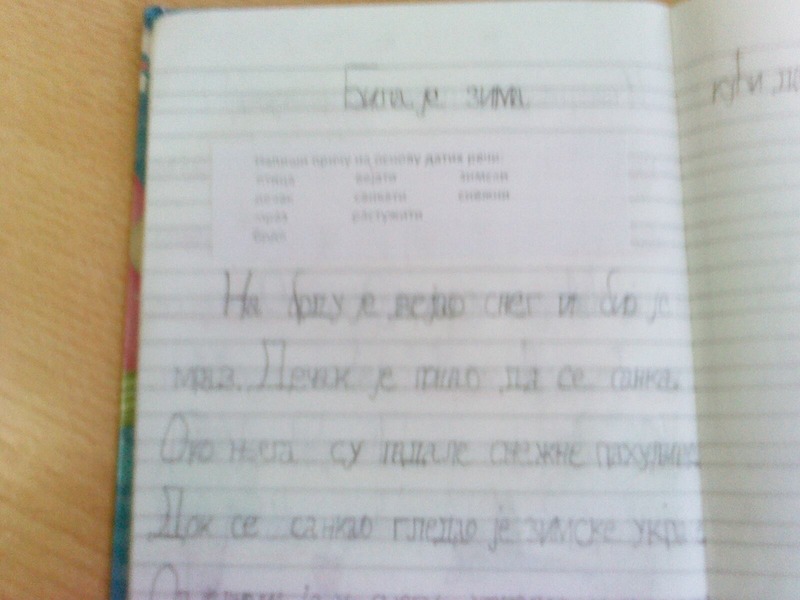 Била је зима
Напиши причу на основу датих речи:
птица вејати зимски
дечак санкати снежни
мраз растужити
брдо
На брду је вејао снег и био је
мраз. Дечак је ишао да се санка.
Око њега су падале снежне пахуљице
Док се санкао гледао је зимске